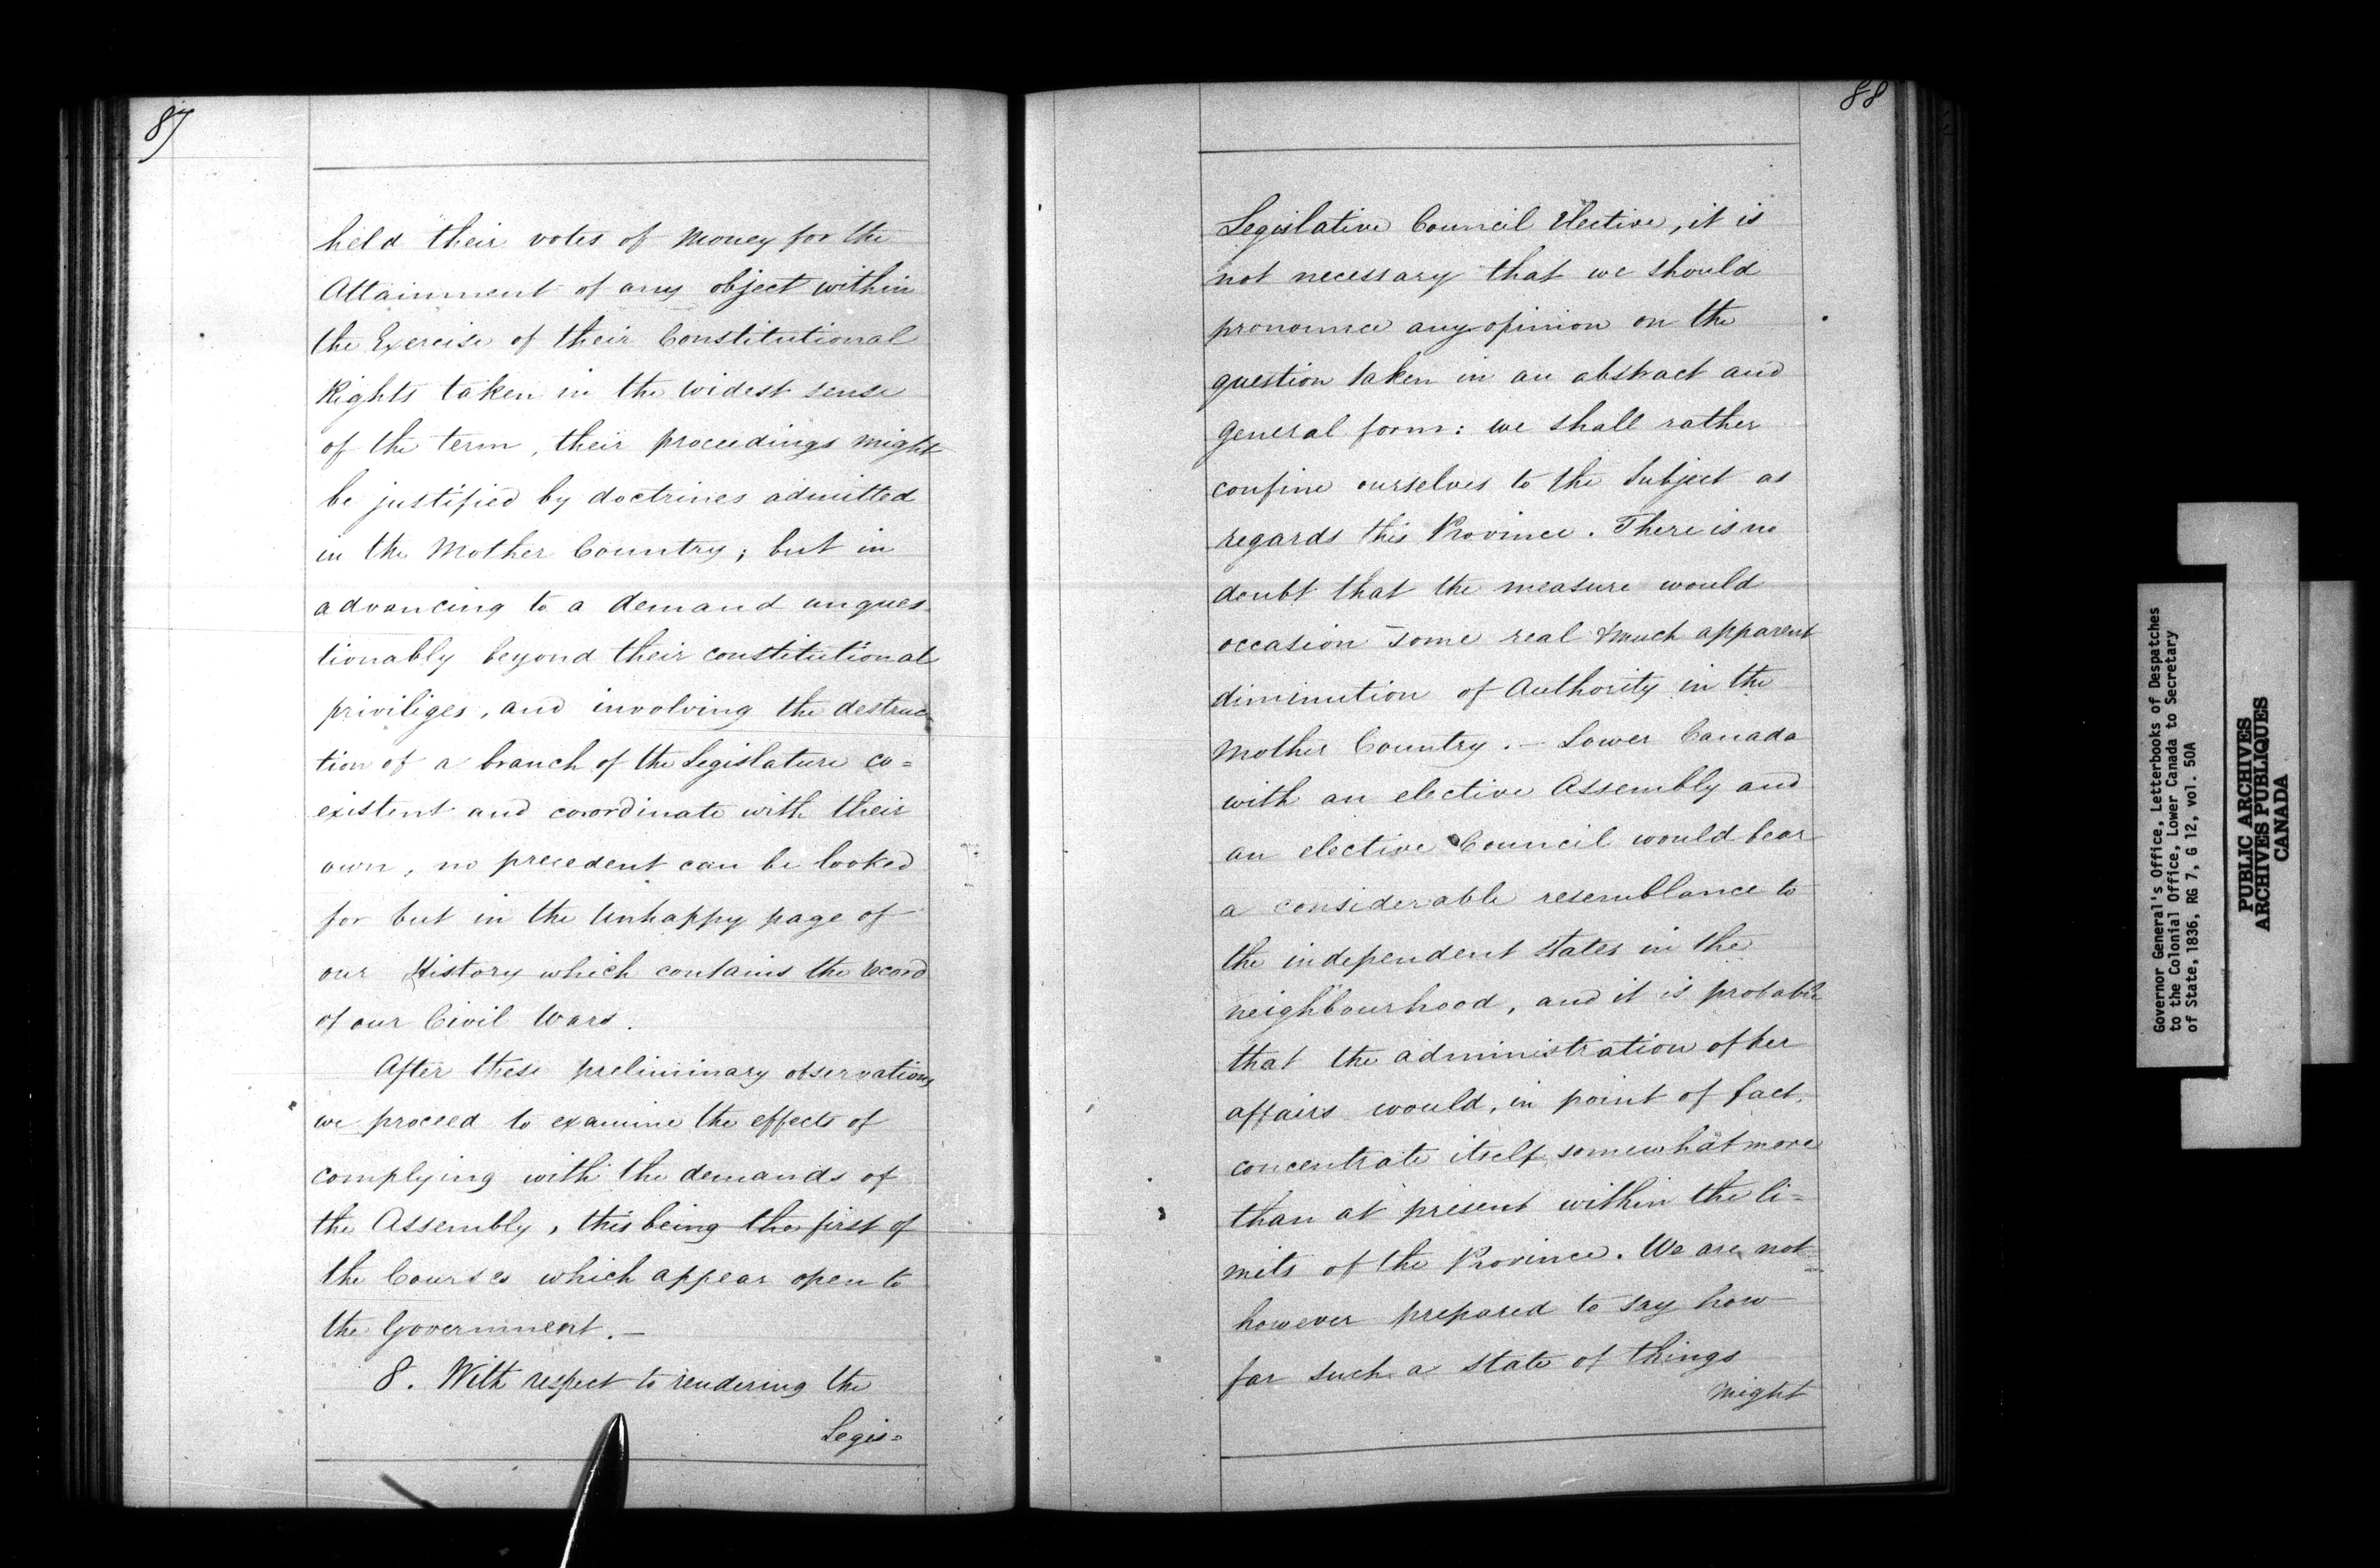 87
held their votes of Money for the
Attainment of any object within
the Exercise of their Constitutional
Rights taken in the widest sense
of the term, their proceedings might
be justified by doctrines admitted
in the Mother Country; but in
advancing to a demand unques-
tionably beyond their constitutional
priviliges, and involving the destruc-
tion of a branch of the Legislature co=
existent and coordinate with their
own, no precedent can be looked
for but in the Unhappy page of
our History which contains the record
of our Civil Wars.
After these preliminary observations
we proceed to examine the effects of
complying with the demands of
the Assembly, this being the first of
the Courses which appear open to
the Government. —
8. With respect to rendering the
Legis=
88
Legislative Council Elective, it is
not necessary that we should
pronounce any opinion on the
question taken in an abstract and
general form: we shall rather
confine ourselves to the Subject as
regards this Province. There is no
doubt that the measure would
occasion some real & much apparent
diminution of Authority in the
Mother Country. — Lower Canada
with an elective Assembly and
an elective Council would bear
a considerable resemblance to
the independent states in the
neighbourhood, and it is probable
that the administration of her
affairs would, in point of fact,
concentrate itself somewhat more
than at present within the li=
mits of the Province. We are not
however prepared to say how
far such a state of things
might
Governor General's Office, Letterbooks of Despatches
to the Colonial Office, Lower Canada to Secretary
of State, 1836, RG 7, G 12, vol. 50A
PUBLIC ARCHIVES
ARCHIVES PUBLIQUES
CANADA